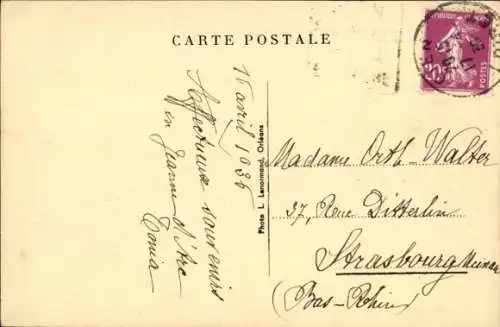 CARTE POSTALE
16 avril 1935
Affectueux souvenirs
Jeanne d'Arc
Tonia
Photo L. Lenormand, Orléans
POSTES
Madame Orth-Walter
37, Rue Ditterlin
Strasbourg
(Bas-Rhin)